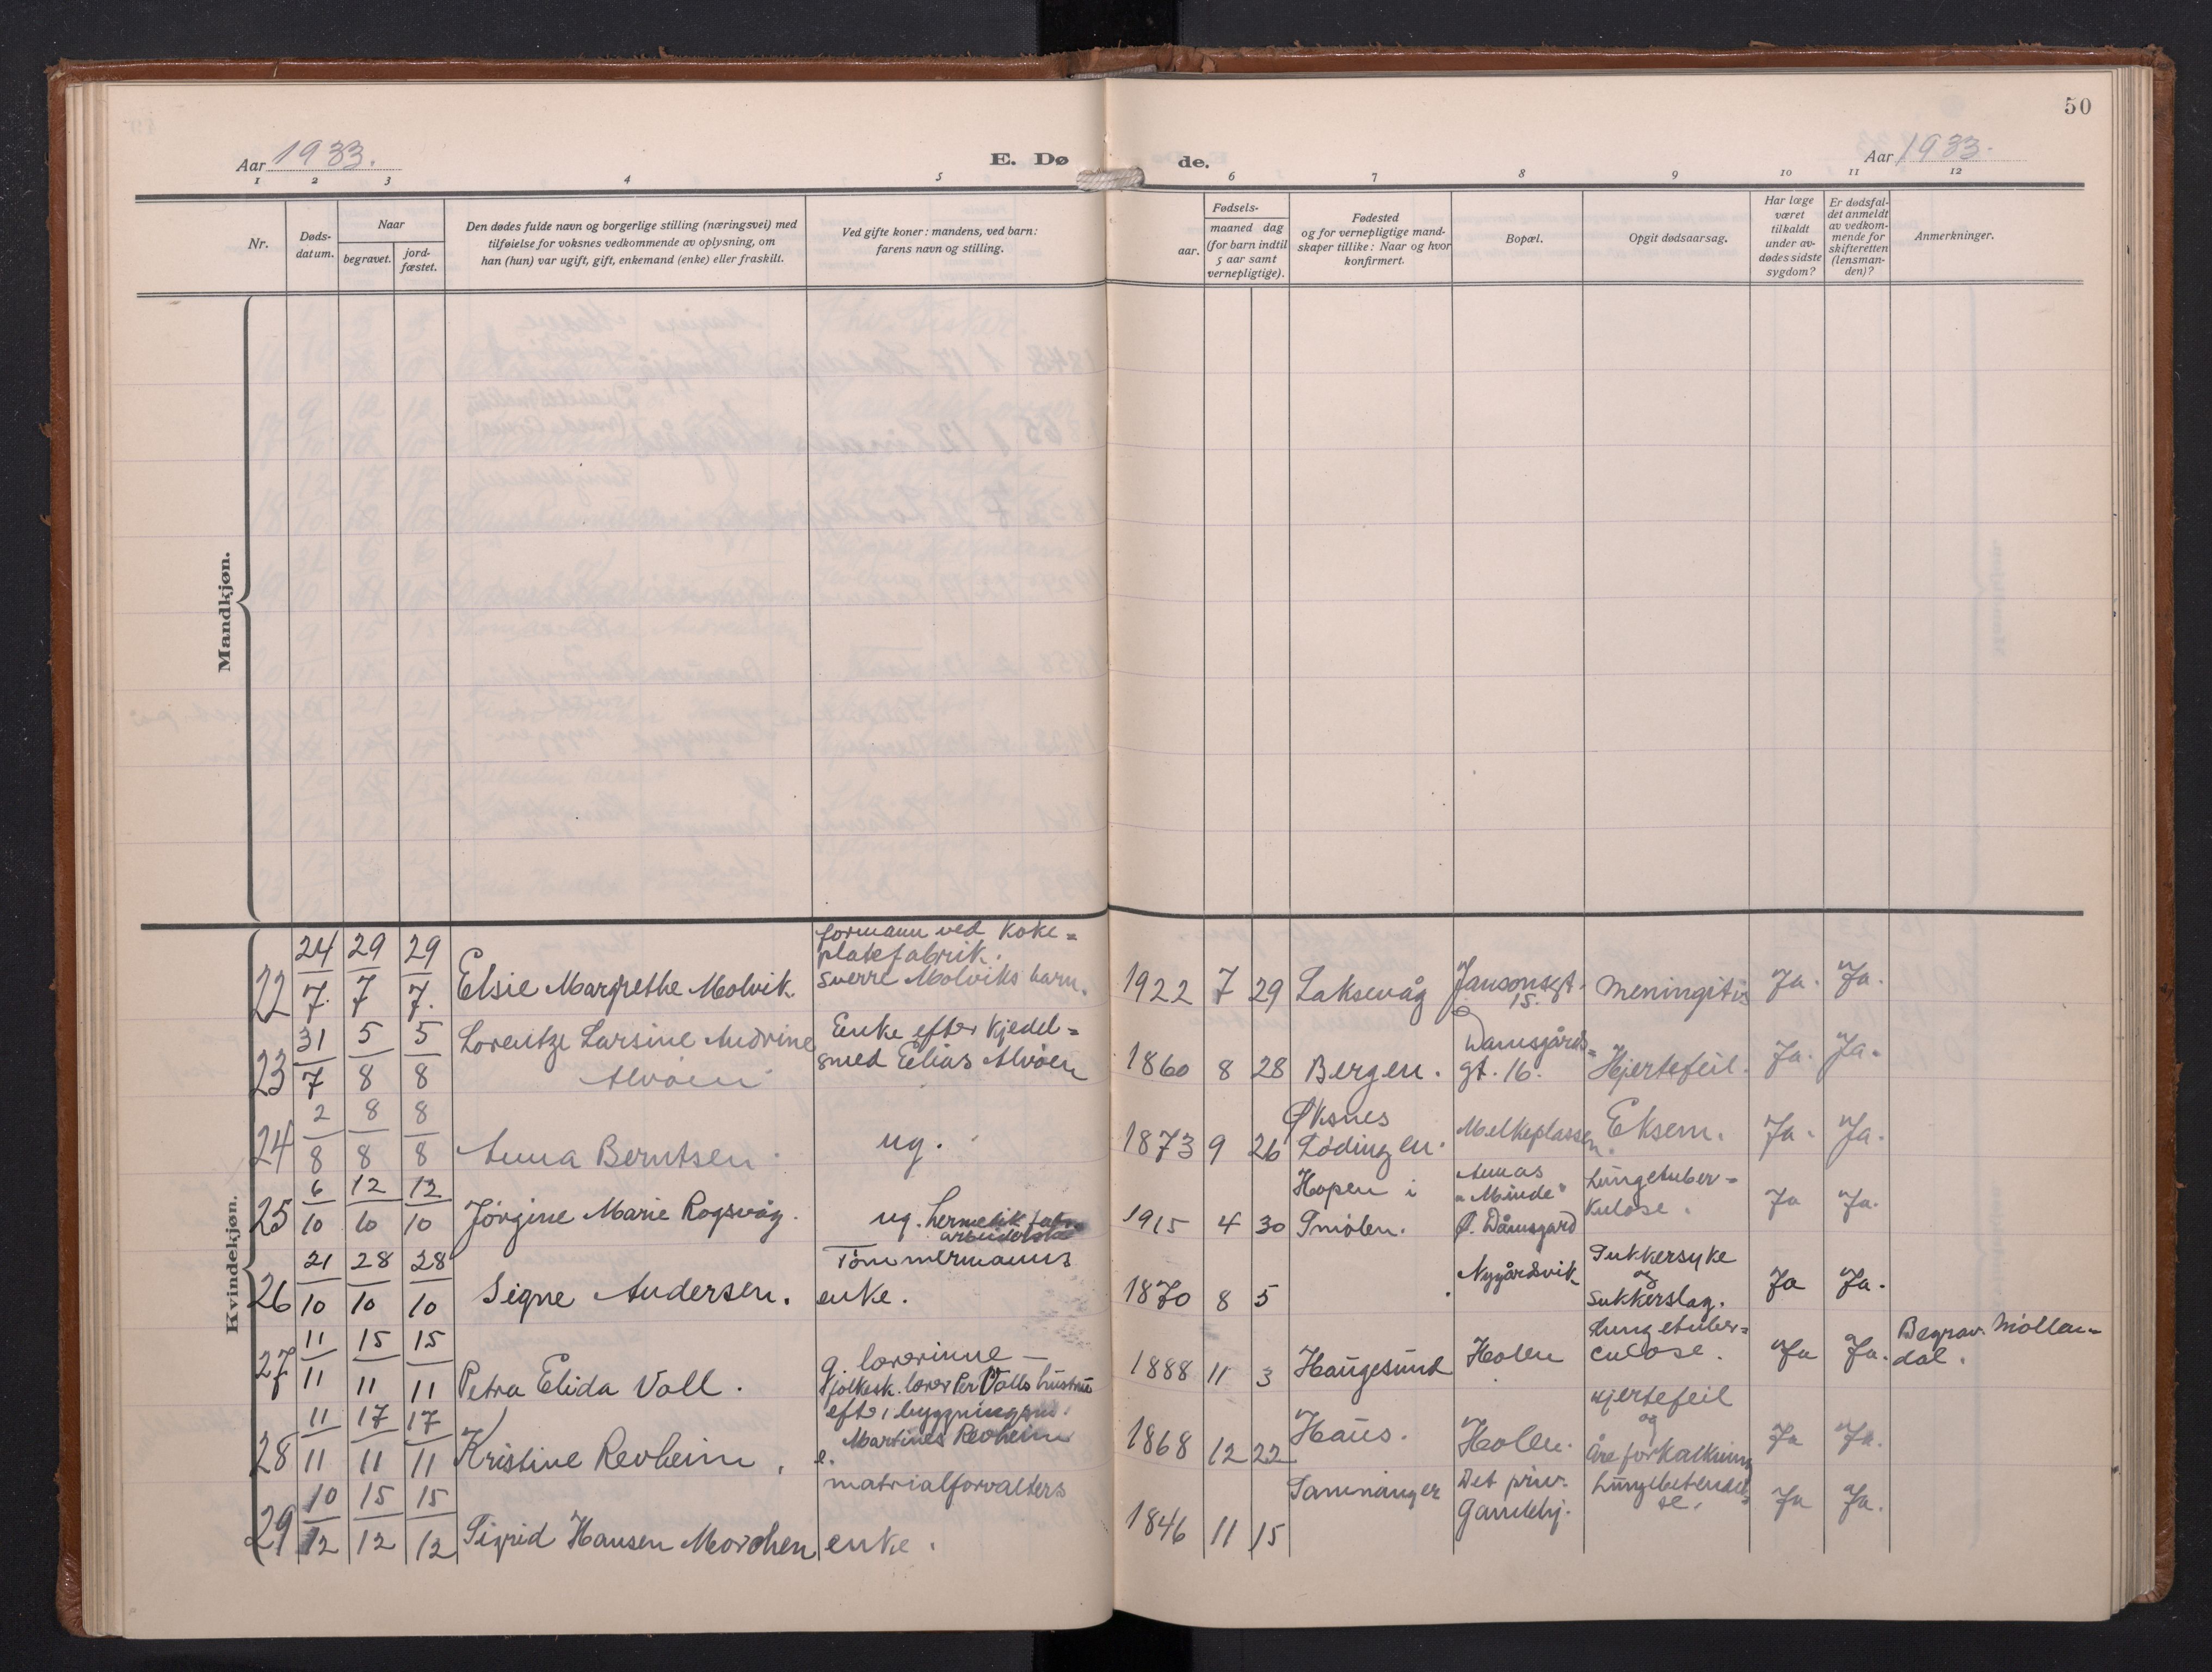 50
Aar 1933.
E. Døde.
Aar 1933.
1 2 3 4 5 6 7 8 9 10 11 12
Nr.
Døds-
datum.
Naar
begravet.
jord-
fæstet.
Den dødes fulde navn og borgerlige stilling (næringsvei) med
tilføielse for voksnes vedkommende av oplysning, om
han (hun) var ugift, gift, enkemand (enke) eller fraskilt.
Ved gifte koner: mandens, ved barn:
farens navn og stilling.
Fødsels-
aar.
maaned dag
(for barn indtil
5 aar samt
vernepligtige).
Fødested
og for vernepligtige mand-
skaper tillike: Naar og hvor
konfirmert.
Bopæl.
Opgit dødsaarsag.
Har læge
været
tilkaldt
under av-
dødes sidste
sygdom?
Er dødsfal-
det anmeldt
av vedkom-
mende for
skifteretten
(lensman-
den)?
Anmerkninger.
Mandkjøn.
Kvindekjøn.
22 24/7. 29/7 29/7. Elsie Margrethe Molvik
formann ved Koke=
platefabrik.
Sverre Molviks barn.
1922 7 29 Laksevåg
Jansonsgt.
15.
Meningitis Ja. Ja.
23 31/7 5/8 5/8 Lorentze Larsine Andrine
Alvøen
Enke efter Kjedel=
smed Elias Alvøen
1860 8 28 Bergen.
Damsgårds=
gt. 16.
Hjertefeil. Ja. Ja.
24 2/8 8/8 8/8 Anna Berntsen
ug.
1873 9 26
Øksnes
Lødingen.
Melkeplassen.
Eksem. Ja. Ja.
25 6/10 12/10 12/10 Jørgine Marie Rogsvåg.
ug. hermetikfabr.
arbeiderske
1915 4 30
Hopen i
Smølen.
Annas
"Minde"
Ø. Damsgård
Lungetuber=
kulose.
Ja Ja.
26 21/10 28/10 28/10 Signe Andersen.
Tømmermanns
enke.
1870 8 5
Nygårdsvik
Sukkersyke
og
Sukkerslag.
Ja Ja.
27 11/11 15/11 15/11 Petra Elida Vall.
g. lærerinne —
folkesk. lærer Per Valls hustru
1888 11 3 Haugesund Holen
Lungetuber=
culose.
Ja Ja.
Begrav. Møllen=
dal.
28 11/11 17/11 17/11 Kristine Revheim.
efter bygningsm.
Martines Revheim
e.
1868 12 22 Haus. Holen.
Hjertefeil
og
Åreforkalkning
Ja Ja.
29 10/12 15/12 15/12 Sigrid Hansen Morchen
matrialforvalters
enke.
1846 11 15 Samnanger
Det priv.
Gamlehj.
Lungebetendel=
se.
Ja Ja.